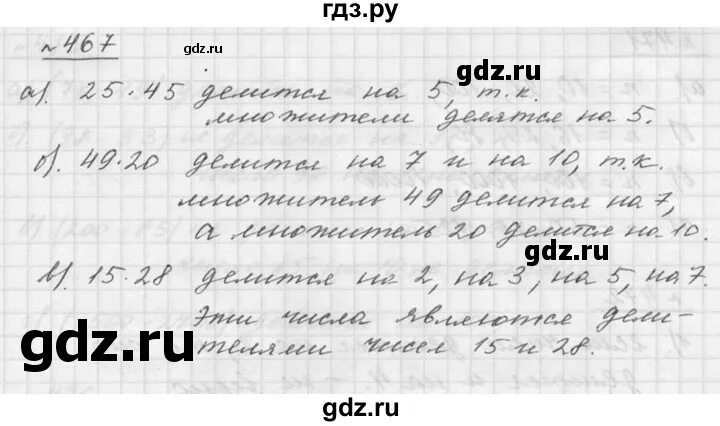 гдз.ру
№ 467
gdz.ru
а). 25·45 делится на 5, т.к.
множители делятся на 5.
б). 49·20 делится на 7 и на 10, т.к.
множитель 49 делится на 7,
а множитель 20 делится на 10.
gdz.ru
в). 15·28 делится на 2, на 3, на 5, на 7.
Эти числа являются дели-
телями чисел 15 и 28.
gdz.ru
gdz.ru
gdz.ru
gdz.ru